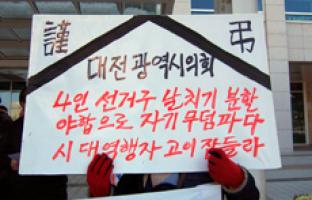 謹 弔
대전광역시의회
4인 선거구 날치기 분할
야합으로 자기무덤파다
시대역행자 고이 잠들라